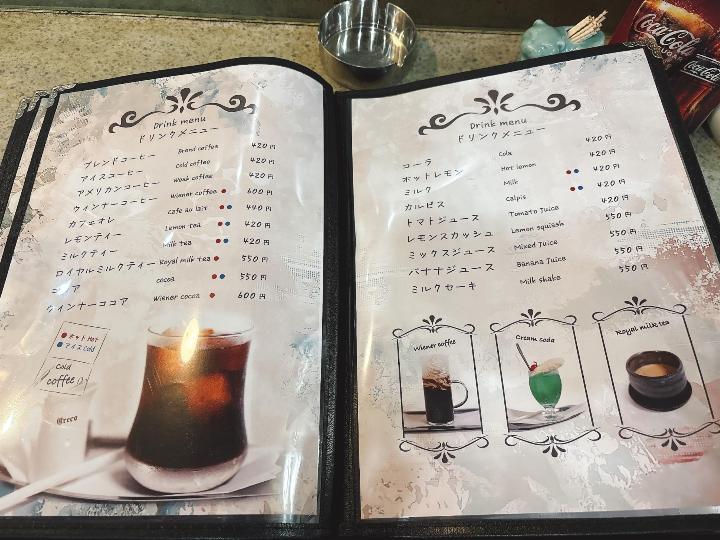 Drink menu
ドリンクメニュー
ブレンドコーヒー Brand coffee 420円
アイスコーヒー Cold coffee 420円
アメリカンコーヒー Weak coffee 420円
ウィンナーコーヒー Wiener coffee 600円
カフェオレ Cafe au lait 440円
レモンティー Lemon tea 420円
ミルクティー Milk tea 420円
ロイヤルミルクティー Royal milk tea 550円
ココア cocoa 550円
ウィンナーココア Wiener cocoa 600円
ホット Hot
アイス Cold
Cold
coffee
Drink menu
ドリンクメニュー
コーラ Cola 420円
ホットレモン Hot lemon 420円
ミルク Milk 420円
カルピス Calpis 420円
トマトジュース Tomato Juice 420円
レモンスカッシュ Lemon squash 550円
ミックスジュース Mixed Juice 550円
バナナジュース Banana Juice 550円
ミルクセーキ Milk shake 550円
Wiener coffee
Cream soda
Royal milk tea
Coca-Cola
Coca-Cola